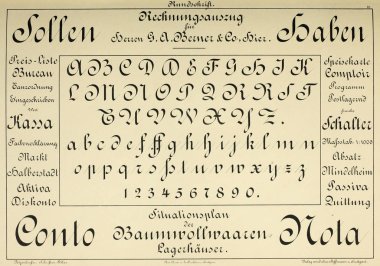 Rundschrift.
Sollen
Rechnungsauszug
für
Herren G. A. Berner & Co, Hier.
Haben
Preis-Liste
Bureau
Tanzordnung
Eingeschrieben
Kassa
Farbenerklärung
Markt
Halberstadt
Aktiva
Diskonto
A B C D E F G H I K
L M N O P Q R S T
U V W X Y Z.
a b c d e f f g h i k l m n
o p q r s t u v w x y z
1 2 3 4 5 6 7 8 9 0.
Speisekarte
Comptoir
Programm
Postlagernd
Schalter
Maßstab 1:1000
Absatz
Mindelheim
Passiva
Quittung
Conto
Situationsplan
der
Baumwollwaaren
Lagerhäuser.
Nota